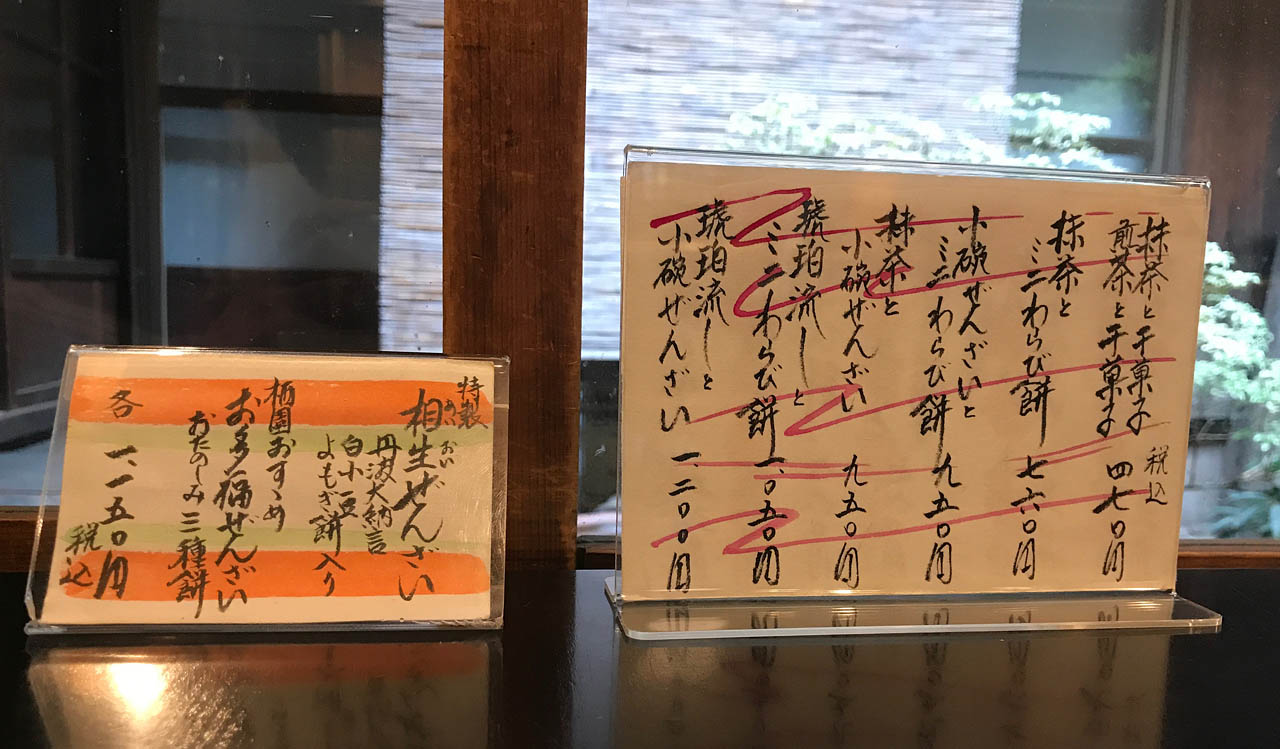 特製
相生ぜんざい
あい
おい
丹波大納言
白小豆
よもぎ餅入り
栖園おすゝめ
お多福ぜんざい
おたのしみ三種餅
各 一、一五〇円
税込
抹茶と干菓子
煎茶と干菓子 四七〇円
税込
抹茶と
ミニわらび餅 七六〇円
小碗ぜんざいと
ミニわらび餅 九五〇円
抹茶と
小碗ぜんざい 九五〇円
琥珀流しと
ミニわらび餅 一、〇五〇円
琥珀流しと
小碗ぜんざい 一、二〇〇円